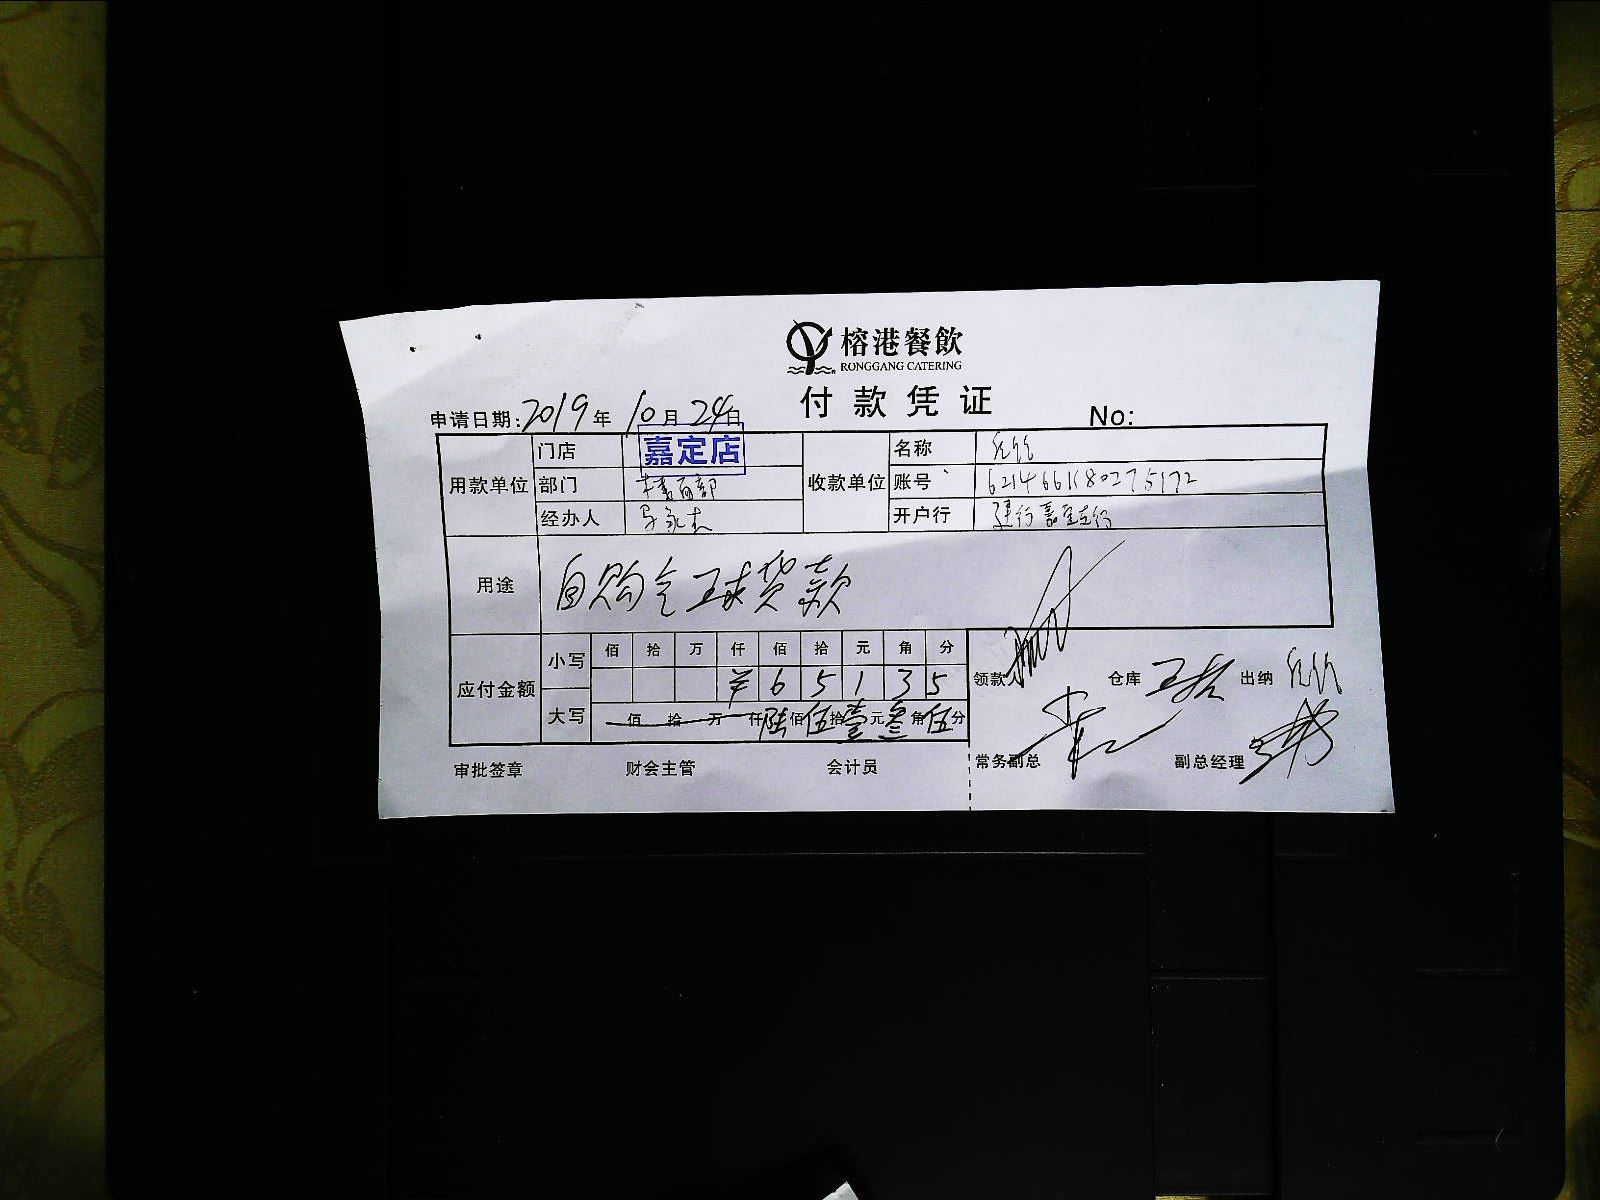 榕港餐飲
RONGGANG CATERING
付款凭证
申请日期:2019年10月24日 No:
用款单位 门店 嘉定店 收款单位 名称
部门 账号 6214661180275172
经办人 开户行 建行嘉定支行
用途 自购全球货款
应付金额 小写 佰 拾 万 仟 佰 拾 元 角 分
¥ 6 5 1 3 5
大写 佰 拾 万 仟 陆佰伍拾壹元叁角伍分
领款 仓库 出纳
常务副总 副总经理
审批签章 财会主管 会计员